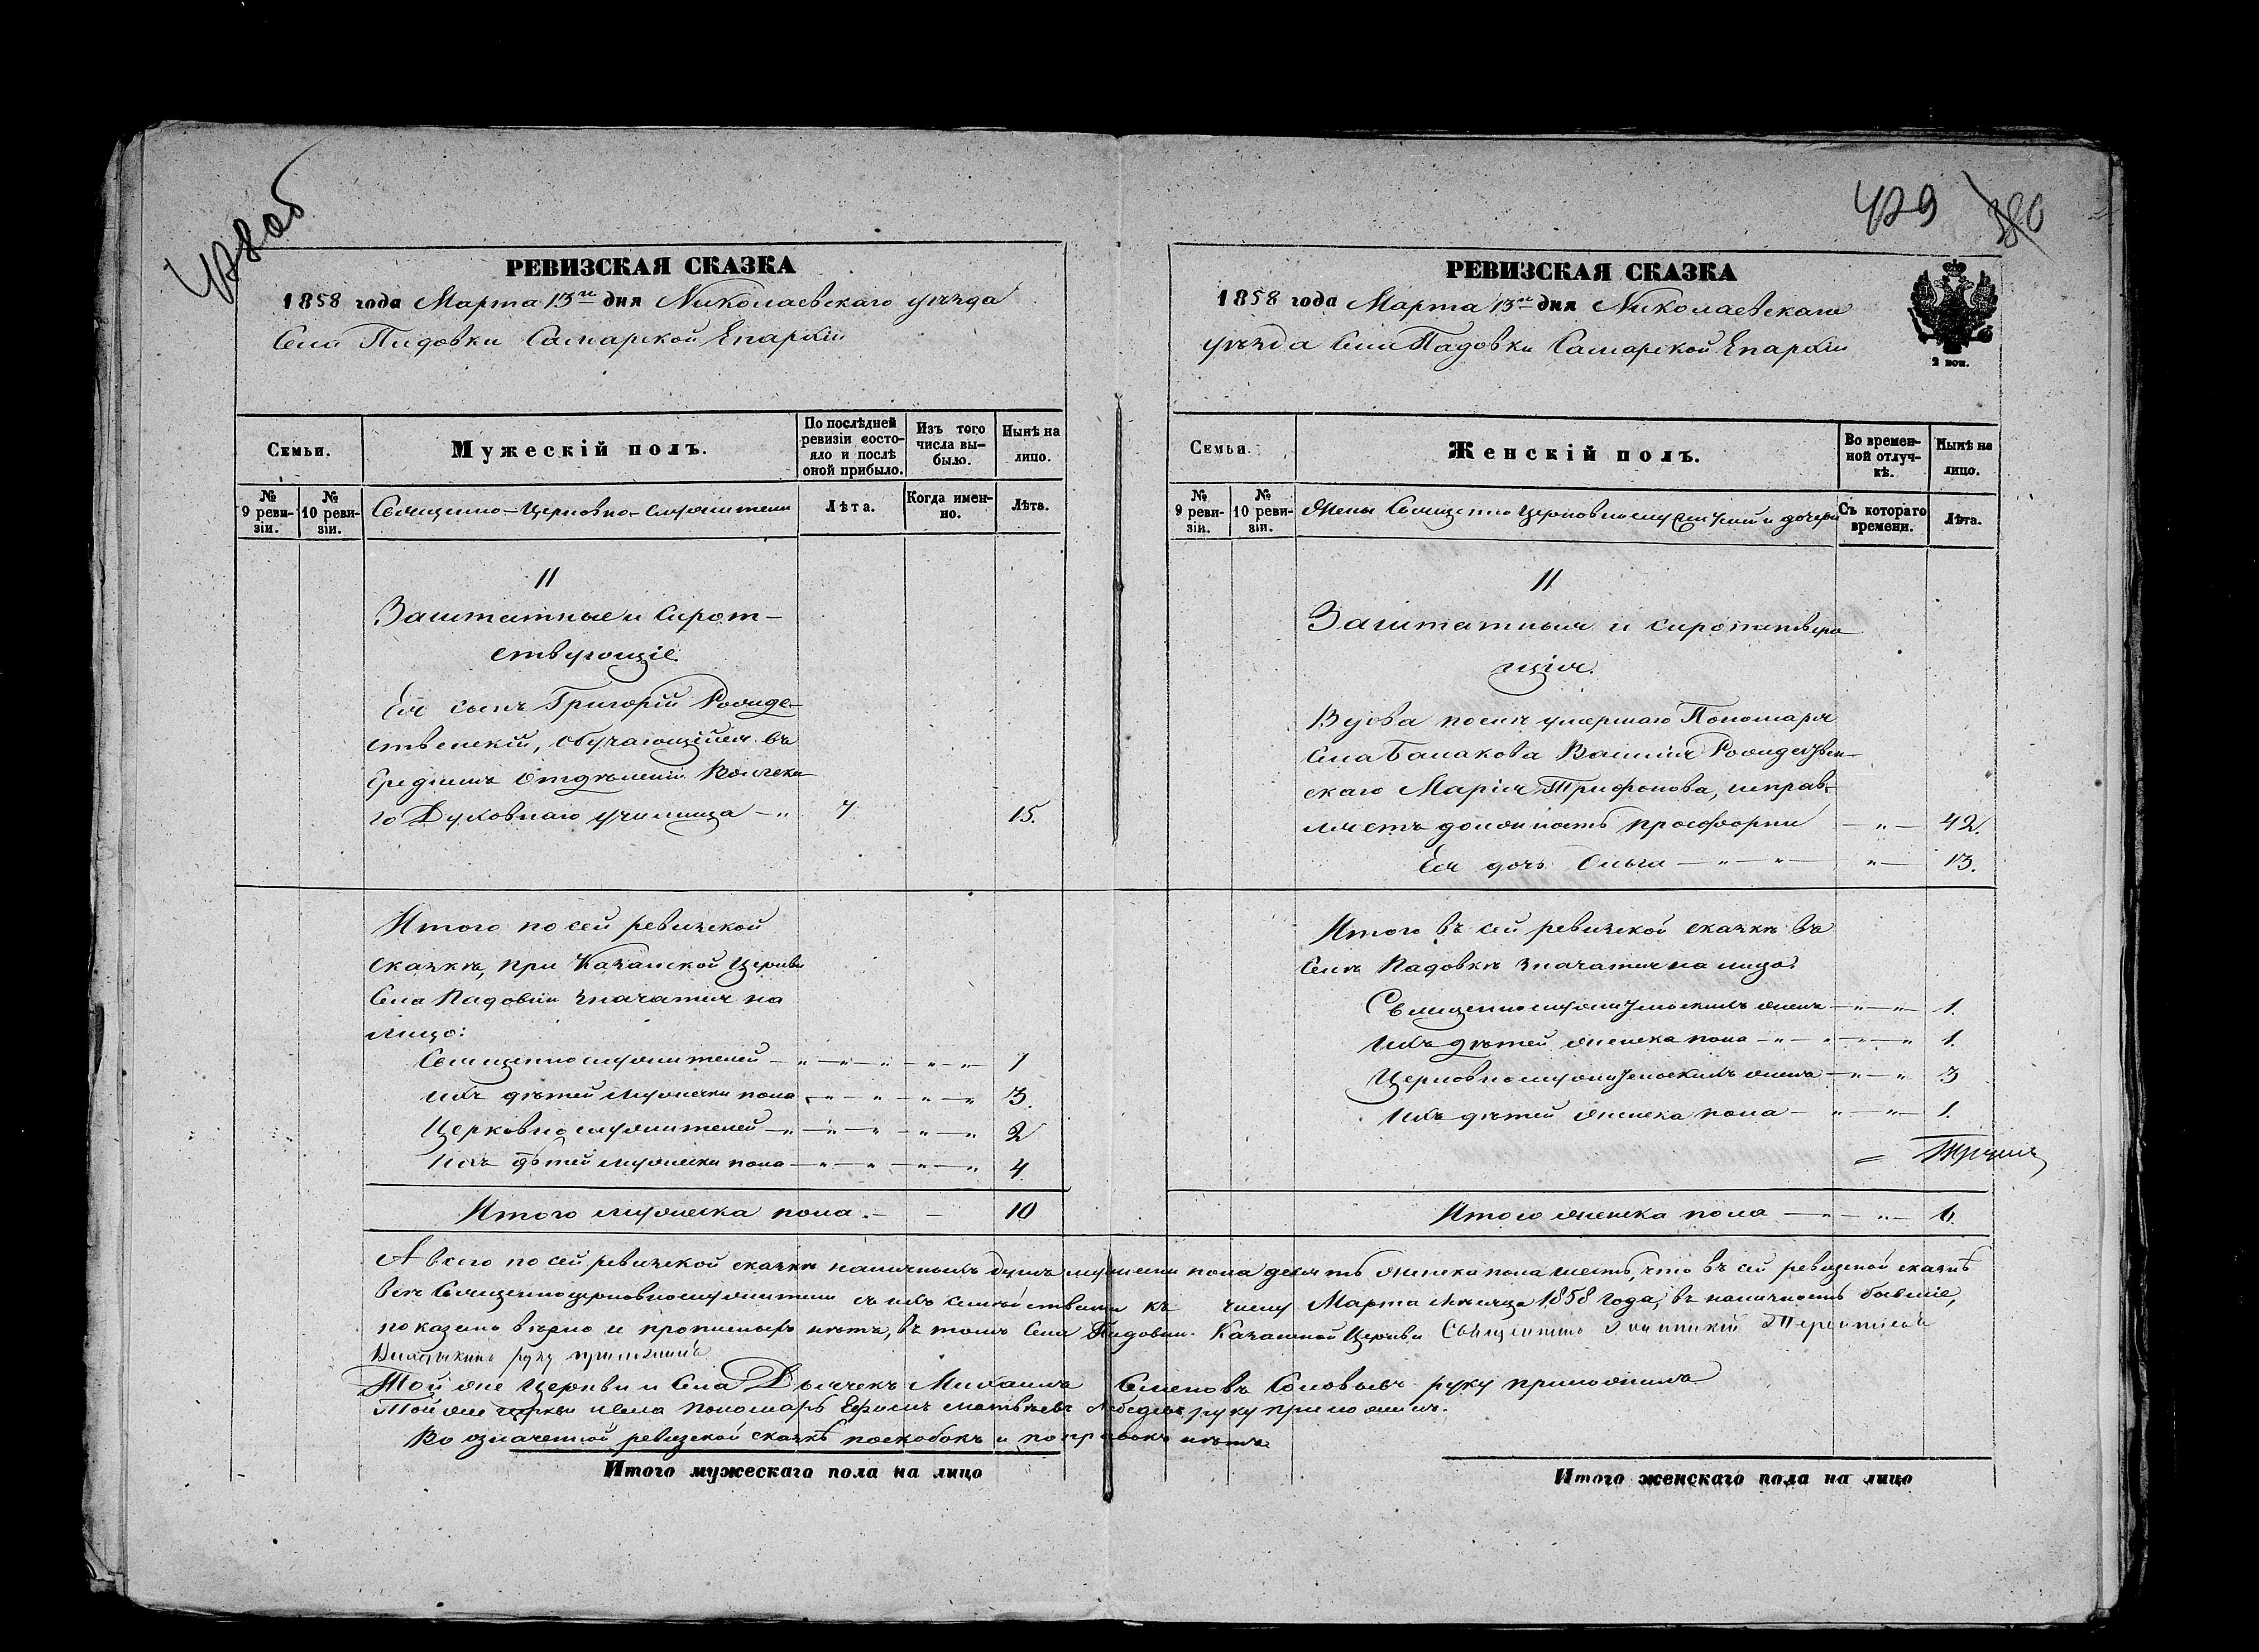 478об
РЕВИЗСКАЯ СКАЗКА
1858 года Марта 13го дня Николаевскаго уѣзда
Села Падовки Самарской Епархіи
Семьи.
Мужескій полъ.
По послѣдней ревизіи состояло и послѣ оной прибыло.
Изъ того числа выбыло.
Нынѣ на лицо.
№ 9 ревизіи.
№ 10 ревизіи.
Священно-Церковно-служители
Лѣта.
Когда именно.
Лѣта.
II
Заштатные и Сирот-
ствующіе.
Ея сынъ Григорій Рожде-
ственскій, обучающійся въ
Среднемъ отдѣленіи Вольска-
го Духовнаго училища — „ 7 15.
Итого по сей ревизской
сказкѣ, при Казанской Церкви
Села Падовки значатся на
лицо:
Священнослужителей — 1
ихъ дѣтей мужеска пола — 3.
Церковнослужителей — 2
Ихъ дѣтей мужеска пола — 4
Итого мужеска пола . — 10
429 380
РЕВИЗСКАЯ СКАЗКА
1858 года Марта 13го дня Николаевскаго
уѣзда Села Падовки Самарской Епархіи
2 коп.
Семьи.
Женскій полъ.
Во временной отлучкѣ.
Нынѣ на лицо.
№ 9 ревизіи.
№ 10 ревизіи.
Жены Священно Церковнослужителей и дочери
Съ котораго времени.
Лѣта.
II
Заштатныя и сиротствую
щія.
Вдова послѣ умершаго Пономаря
Села Балакова Василія Рождествен-
скаго Марія Трифонова, исправ-
ляетъ должность просфорни — „ — 42.
Ея дочь Ольга — „ — „ — 13.
Итого въ сей ревизской сказкѣ въ
Селѣ Падовкѣ значатся на лицо:
Священнослужительскихъ женъ — 1.
Ихъ дѣтей женска пола — 1.
Церковнослужительскихъ женъ — 3
Ихъ дѣтей женска пола — 1.
Итого женска пола — 6.
А всего по сей ревизской сказкѣ наличныхъ душъ мужеска пола десять женска пола шесть, что въ сей ревизской сказкѣ
всѣ Священноцерковнослужители съ ихъ семействами къ числу Марта мѣсяца 1858 года, въ наличность бывшіе,
показаны вѣрно и прописныхъ нѣтъ, въ томъ Села Падовки Казанской Церкви Священникъ
руку приложилъ
Той же церкви и Села Дьячекъ Михаилъ Семеновъ Соловьевъ руку приложилъ
Той же церкви и села пономарь Ефимъ Матвѣевъ Лебедевъ руку приложилъ.
Во означенной ревизской сказкѣ поскобокъ и поправокъ нѣтъ.
Итого мужескаго пола на лицо
Итого женскаго пола на лицо